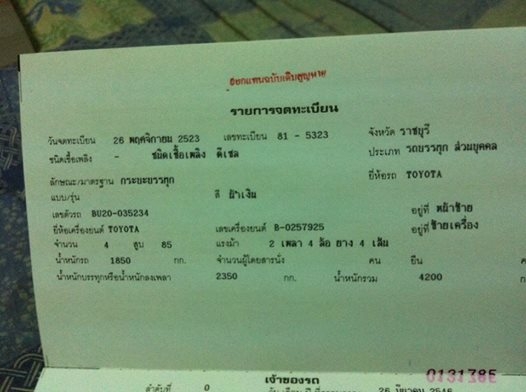 ออกแทนฉบับเดิมสูญหาย
รายการจดทะเบียน
วันจดทะเบียน 26 พฤศจิกายน 2523 เลขทะเบียน 81 - 5323 จังหวัด ราชบุรี
ชนิดเชื้อเพลิง - ชนิดเชื้อเพลิง ดีเซล ประเภท รถบรรทุก ส่วนบุคคล
ลักษณะ/มาตรฐาน กระบะบรรทุก ยี่ห้อรถ TOYOTA
แบบ/รุ่น สี น้ำเงิน
เลขตัวรถ BU20-035234 อยู่ที่ หน้าซ้าย
ยี่ห้อเครื่องยนต์ TOYOTA เลขเครื่องยนต์ B-0257925 อยู่ที่ ซ้ายเครื่อง
จำนวน 4 สูบ 85 แรงม้า 2 เพลา 4 ล้อ ยาง 4 เส้น
น้ำหนักรถ 1850 กก. จำนวนผู้โดยสารนั่ง คน ยืน
น้ำหนักบรรทุกหรือน้ำหนักลงเพลา 2350 กก. น้ำหนักรวม 4200
0131785
เจ้าของรถ
ลำดับที่ 0 26 มีนาคม 2546